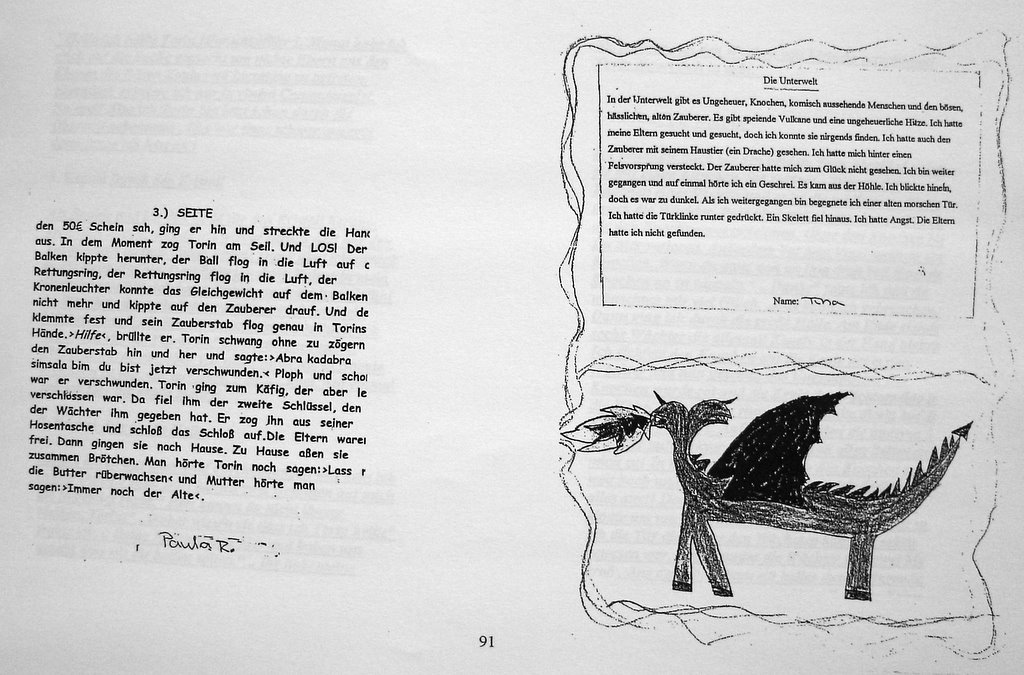 3.) SEITE
den 50€ Schein sah, ging er hin und streckte die Hand
aus. In dem Moment zog Torin am Seil. Und LOS! Der
Balken kippte herunter, der Ball flog in die Luft auf
Rettungsring, der Rettungsring flog in die Luft, der
Kronenleuchter konnte das Gleichgewicht auf dem Balken
nicht mehr und kippte auf den Zauberer drauf. Und de
klemmte fest und sein Zauberstab flog genau in Torins
Hände.>Hilfe<, brüllte er. Torin schwang ohne zu zögern
den Zauberstab hin und her und sagte:>Abra kadabra
simsala bim du bist jetzt verschwunden.< Ploph und scho
war er verschwunden. Torin ging zum Käfig, der aber le
verschlossen war. Da fiel ihm der zweite Schlüssel, den
der Wächter ihm gegeben hat. Er zog Jhn aus seiner
Hosentasche und schloß das Schloß auf.Die Eltern ware
frei. Dann gingen sie nach Hause. Zu Hause aßen sie
zusammen Brötchen. Man hörte Torin noch sagen:>Lass
die Butter rüberwachsen< und Mutter hörte man
sagen:>Immer noch der Alte<.
Paula R.
91
Die Unterwelt
In der Unterwelt gibt es Ungeheuer, Knochen, komisch aussehende Menschen und den bösen,
hässlichen, alten Zauberer. Es gibt speiende Vulkane und eine ungeheuerliche Hitze. Ich hatte
meine Eltern gesucht und gesucht, doch ich konnte sie nirgends finden. Ich hatte auch den
Zauberer mit seinem Haustier (ein Drache) gesehen. Ich hatte mich hinter einen
Felsvorsprung versteckt. Der Zauberer hatte mich zum Glück nicht gesehen. Ich bin weiter
gegangen und auf einmal hörte ich ein Geschrei. Es kam aus der Höhle. Ich blickte hinein,
doch es war zu dunkel. Als ich weitergegangen bin begegnete ich einer alten morschen Tür.
Ich hatte die Türklinke runter gedrückt. Ein Skelett fiel hinaus. Ich hatte Angst. Die Eltern
hatte ich nicht gefunden.
Name: Tina